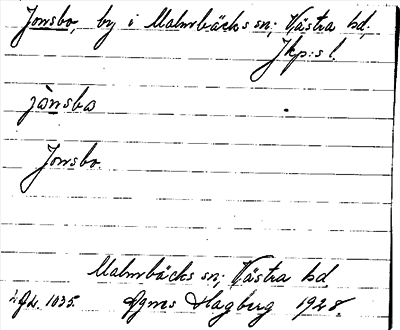 Jonsbo, by i Malmbäcks sn; Västra hd,
Jkp:s l.
jònsbo
Jonsbo
Malmbäcks sn; Västra hd
1035. Agnes Hagberg 1928.